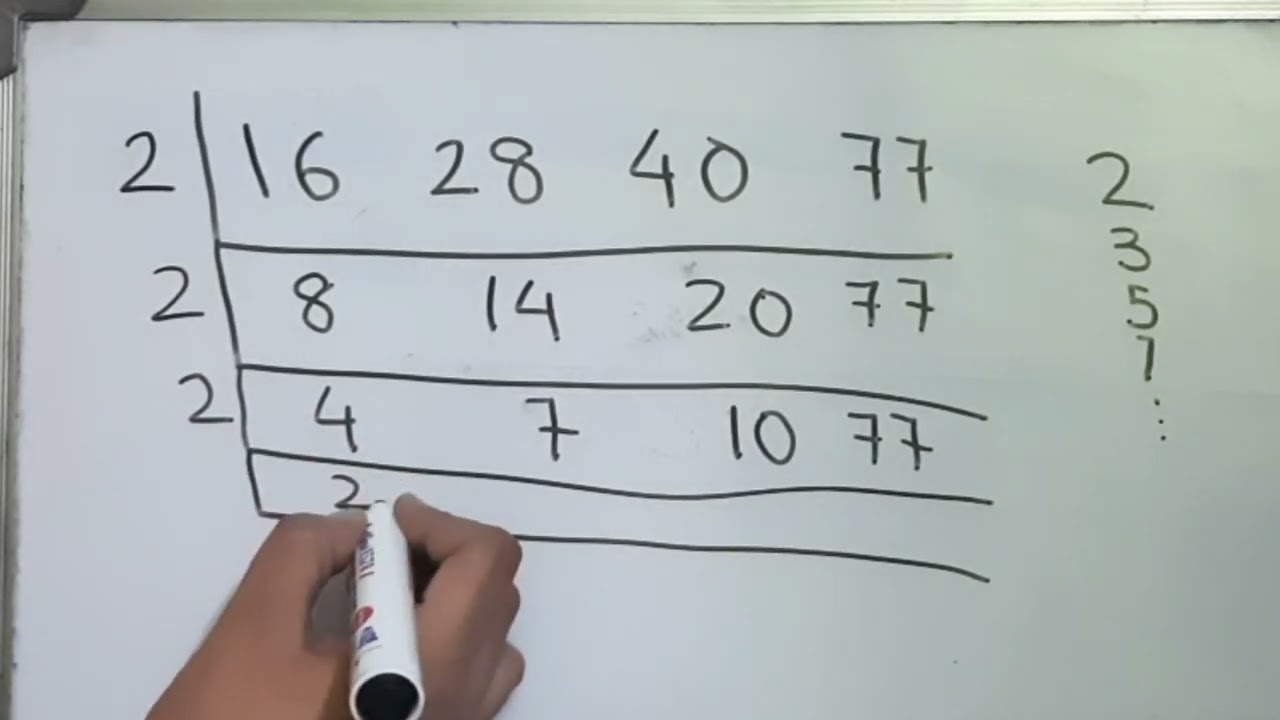 2 16 28 40 77
2 8 14 20 77
2 4 7 10 77
2
2
3
5
7
: